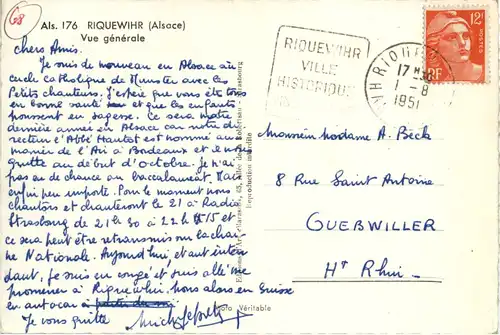 68
Als. 176 RIQUEWIHR (Alsace)
Vue générale
chers Amis.
Je suis de nouveau en Alsace au
cercle catholique de Munster avec les
Petits chanteurs. J'espère que vous êtes tous
en bonne santé et que les enfants
poussent en sagesse. Ce sera notre
dernière année en Alsace car notre di
recteur l'Abbé est nommé au
de l' à Bordeaux et nous
quitte au début d'octobre. Je n'ai
pas eu de chance au baccalauréat. Mais
enfin peu importe. Pour le moment nous
chantons et chanterons le 21 à Radio
Strasbourg de 21 h30 à 22 H 15 et
ce sera peut être retransmis sur la chaî
ne Nationale. Aujourd'hui et aut
daut, je suis en congé et suis allé me
promener à Riquewihr, nous alons en Suisse
en autocar
Je vous quitte
Photo Véritable
Reproduction interdite
RIQUEWIHR
VILLE
HISTORIQUE
RIQUEWIHR
17 H
1 - 8
1951
12F
RF
POSTES
Monsieur Madame A. Beck
8 Rue Saint Antoine
GUEBWILLER
Ht Rhin